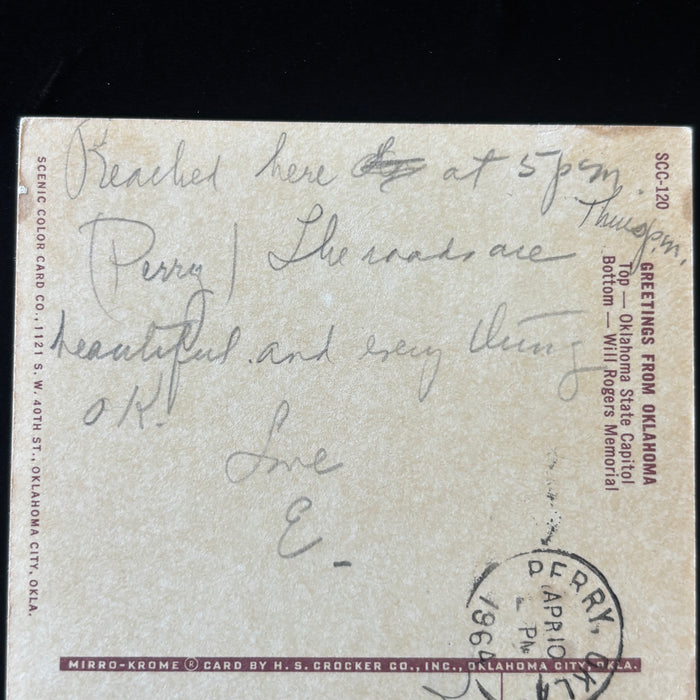 Reached here at 5 p.m.
Thurs p.m.
(Perry) The roads are
beautiful and every thing
OK.
Love
E -
SCC-120
GREETINGS FROM OKLAHOMA
Top — Oklahoma State Capitol
Bottom — Will Rogers Memorial
SCENIC COLOR CARD CO., 1121 S. W. 40TH ST., OKLAHOMA CITY, OKLA.
PERRY, OK
APR 10
PM
1964
MIRRO-KROME ® CARD BY H. S. CROCKER CO., INC., OKLAHOMA CITY, OKLA.